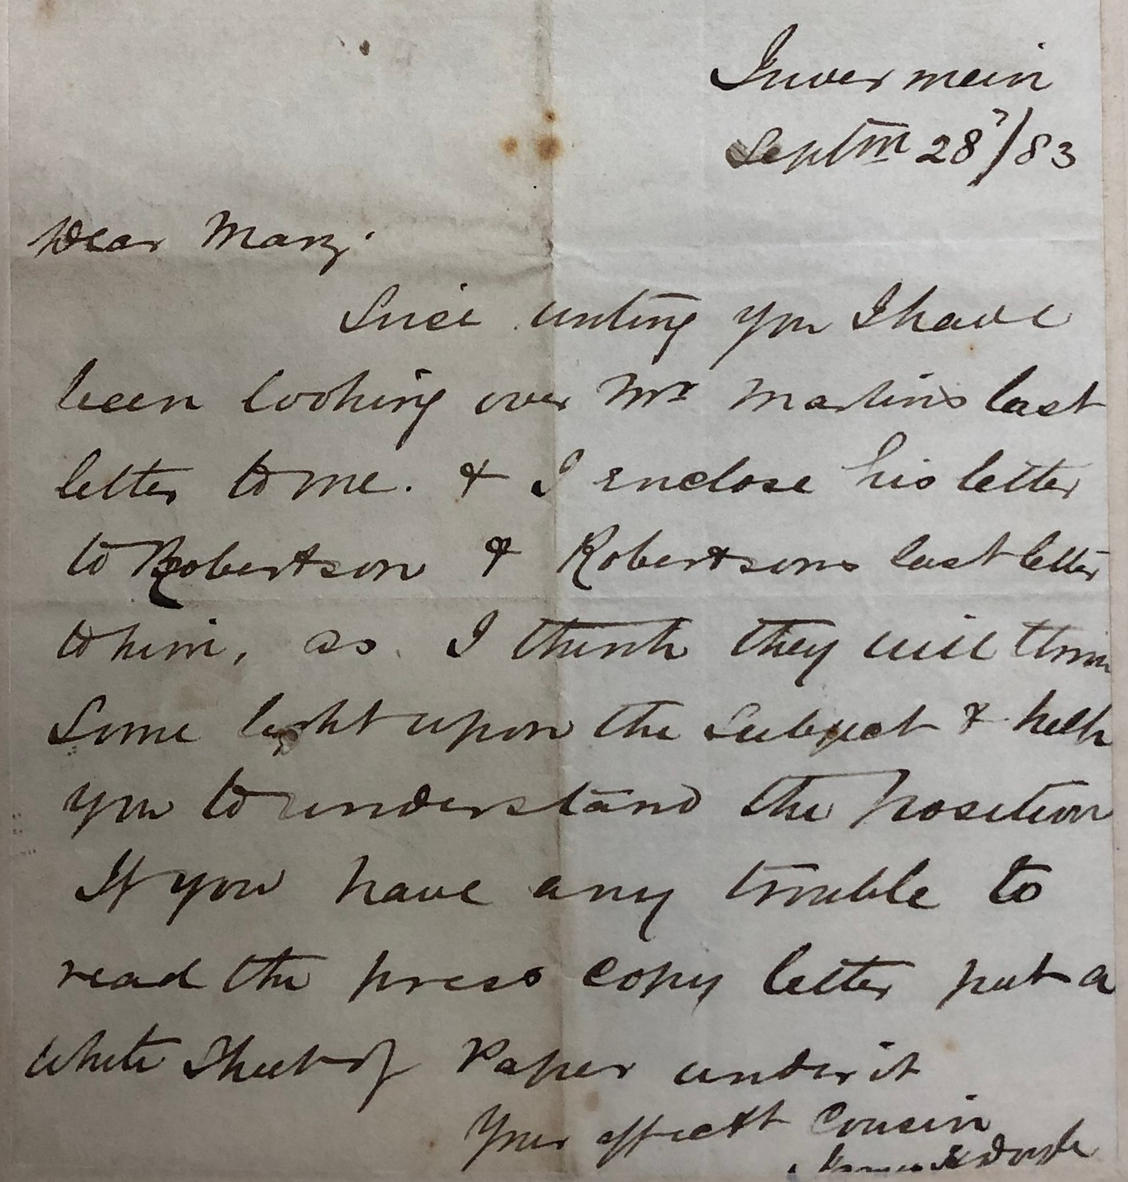 Invermein
Septm 28/83
Dear Mary.
Since writing you I have
been looking over Mr Martins last
letter to me. & I enclose his letter
to Robertson & Robertsons last letter
to him, as I think they will throw
some light upon the subject & help
you to understand the position
If you have any trouble to
read the press copy letter put a
white sheet of Paper under it
Your affectt Cousin
James